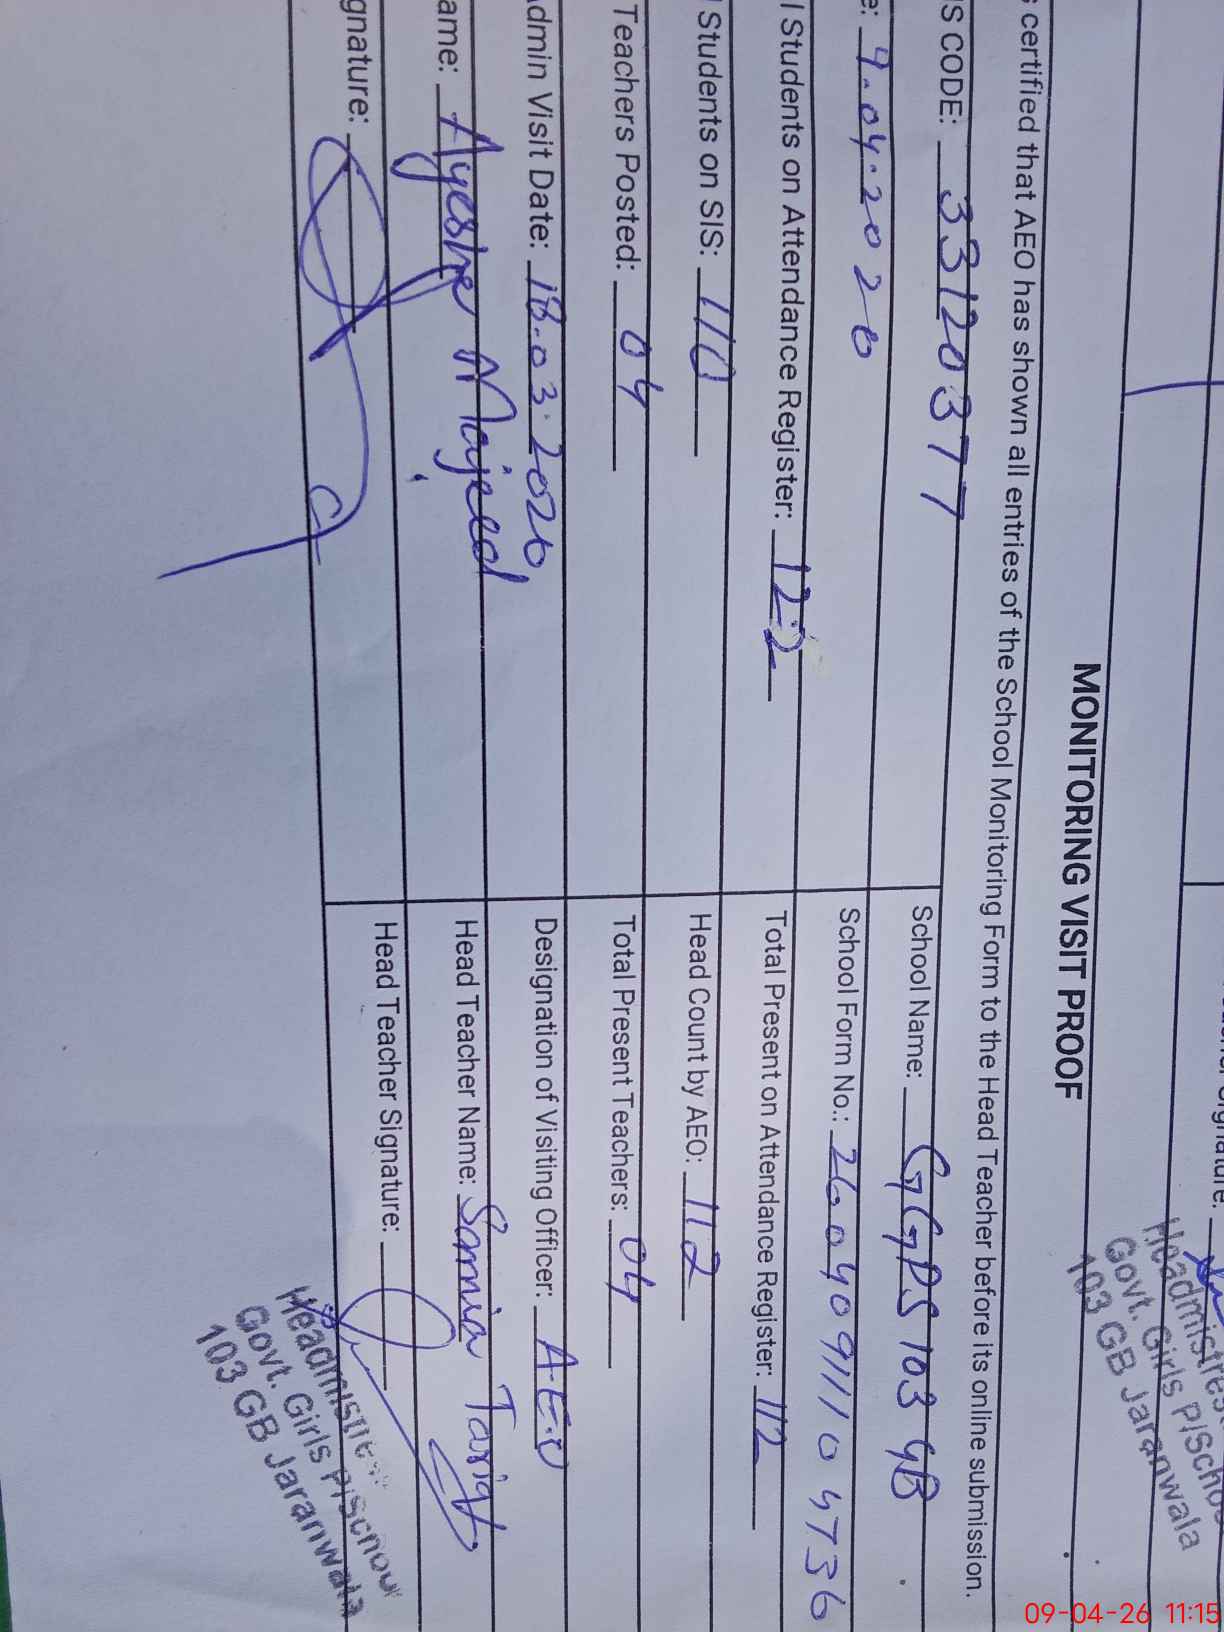 gnature:
Headmistres
Govt. Girls P/Schoo
103 GB Jaranwala
MONITORING VISIT PROOF
s certified that AEO has shown all entries of the School Monitoring Form to the Head Teacher before its online submission.
IS CODE: 33120377 School Name: GGPS 103 GB
e: 9.04.2026 School Form No.: 26040911104736
l Students on Attendance Register: 122 Total Present on Attendance Register: 112
l Students on SIS: 110 Head Count by AEO: 112
Teachers Posted: 04 Total Present Teachers: 04
Admin Visit Date: 18.03.2026 Designation of Visiting Officer: AEO
ame: Ayesha Majeed Head Teacher Name: Samia Tariq
gnature: Head Teacher Signature:
Headmistress
Govt. Girls P/School
103 GB Jaranwala
09-04-26 11:15